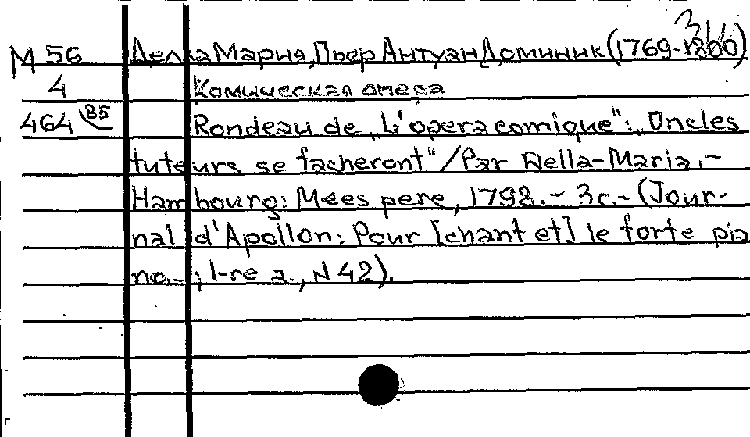 М 56 Делла Мария, Пьер Антуан Доминик (1769-1800)
4 Комическая опера
464 85 Rondeau de "L'opera comique": "Oncles
tuteurs se facheront" / Par Della-Maria.-
Hambourg: Mees pere, 1798.- 3с.- (Jour-
nal d'Apollon: Pour [chant et] le forte pia
no.. ; 1-re a., N 42).